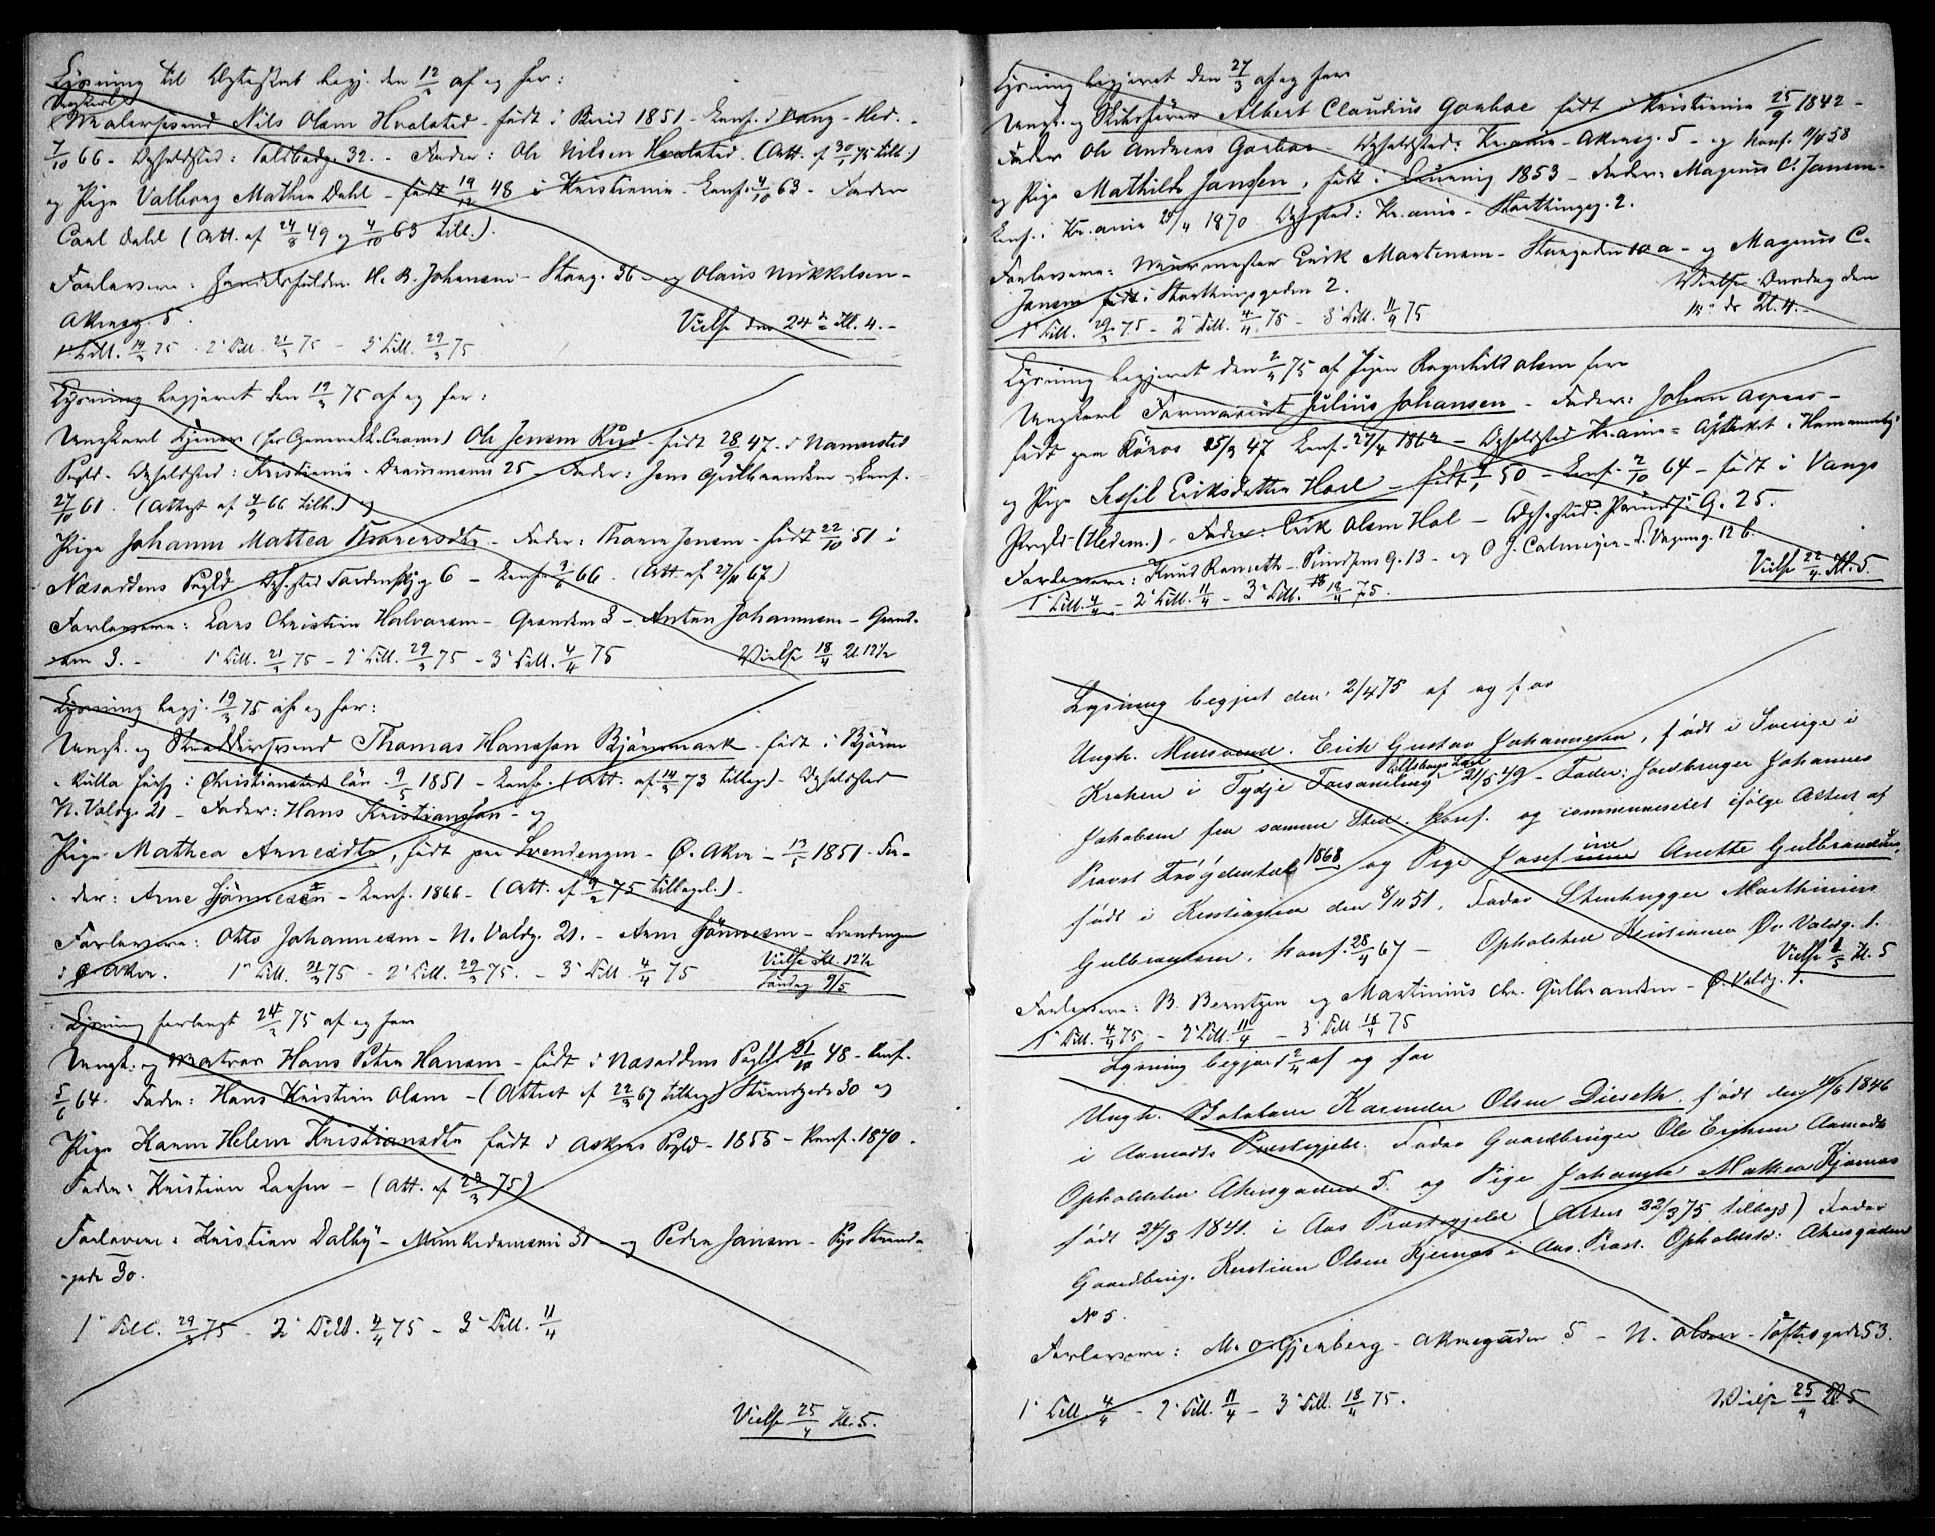 Lysning til Ægteskab begj. den 12/3 af og for:
Ungkarl
Malersvend Nils Olsen Hvalsted - født i Biri 1851 - Konf. i Vang - Hed. -
7/10 66 - Opholdsted: Toldbodg. 32. - Fader: Ole Nilsen Hvalsted. (Att. af 30/1 75 till.)
og Pige Valborg Mathea Dahl - født 19/12 48 i Kristiania - Konf. 4/10 63 - Fader
Carl Dahl (Att. af 24/8 49 og 4/10 63 till.).
Forlovere: H. B. Johansen - Storg. 36 - og Olaus Mikkelsen -
Akersg. 5.
Vielse den 24de Kl. 4. -
1ste Till. 14/3 75 - 2' Till. 21/3 75 - 3' Till. 29/3 75
Lysning begjæret den 19/3 75 af og for:
Ungkarl Tjener Ole Jensen Rud - født 28/9 47 i Nannestad
Pgld. - Opholdsted: Kristiania - 25 - Fader: Jens Gulbrandsen - Konf.
27/10 61. (Attest af 4/9 66 till.) og
Pige Johanne Mattea Thoresdtr - Fader: Thore Jensen - født 22/10 51 i
Næsoddens Pgld 6 - Konf. 66. (Att. af 27/11 67.)
Forlovere: Lars Christian Halvorsen - Grændsen 3 - Anton Johannesen - Grænd-
sen 3. - 1' Till. 21/3 75 - 2' Till. 29/3 75 - 3' Till. 4/4 75 Vielse 18/4 Kl. 12½
Lysning begj. 19/3 75 af og for:
Ungk. og Skræddersvend Thomas Hansson Björnmark - født i
i Christiansted län 9/5 1851 - Konf. (Att. af 14/2 73 tillagt) - Opholdsted
N. Voldg. 21 - Fader: Hans Kristiansson - og
Pige Mathea Arnesdtr, født paa Svendengen - Ø. Aker - 1851 - Fa-
der: Arne - Konf. 1866 - (Att. af 75 tillagt.)
Forlovere: Otto Johannesen - N. Voldg. 21. - Arne - Svendengen
i Ø. Aker. 1' Till. 21/3 75 - 2' Till. 29/3 75. - 3' Till. 4/4 75 Vielse Kl. 12½
Søndag 9/5
Lysning forlangt 24/3 75 af og for
Ungk. og Matros Hans Peter Hansen - født i Næsoddens Pgld. 31/10 48 - Konf.
64. Fader: Hans Kristian Olsen - (Attest af 22/3 67 tillagt) Strandgade 30 og
Pige Karen Helene Kristiansdtr født i Askers Pgld - 1855 - Konf. 1870.
Fader: Kristian Larsen - (Att. af 23/3 75)
Forlovere: Kristian Dalby - Munkedamsvei 31 og Peder Jansen - Strand-
gade 30.
1' Till. 29/3 75 - 2' Till. 4/4 75 - 3' Till. 11/4
Vielse 25/4 Kl. 5.
Lysning begjæret den 27/3 af og for
Ungk. og Albert Claudius Gorboe født i Kristiania 25/9 1842 -
Fader Ole Andreas Gorboe - Opholdsted: Kr.ania - Akersg. 5 - og Konf. 58
og Pige Mathilde Janssen, født i 1853 - Fader: Magnus C. Jansen -
Konf. i Kr.ania 1870 Ophsted: Kr.ania - Storthingsg. 2.
Forlovere: Murmester Erik Mortensen - Storgaden 10 a - og Magnus C.
Jansen Storthingsgaden 2. Vielse Onsdag den
14de ds Kl. 4. -
1' Till. 29/3 75 - 2' Till. 4/4 75 - 3' Till. 11/4 75
Lysning begjæret den 2/4 75 af Pigen Ragnhild Olsen for
Ungkarl Farmaceut Julius Johansen - Fader: Johan Aspaas -
født paa Röros 25/3 47 Konf. 27/4 1862 - Opholdsted Kr.ania =
og Pige Sessil Eriksdatter Hoel - født 50 - Konf. 2/10 64 - født i Vangs
Prgld - (Hedem.) - Fader: Erik Olsen Hol - Ophsted: Prindsens G. 25.
Forlovere: Knud Ramseth - Prindsens G. 13 - og O. J. Calmeyer - 12 b.
Vielse 22/4 Kl. 5.
1' Till. 4/4 - 2' Till. 11/4 - 3' Till. 18/4 75.
Lysning begjert den 2/4 75 af og for
Ungk. Mursvend. Erik Gustav Johannesen, født i Sverige i
Elfsborgs Län
Kroken i Tydje Forsamling 21/5 49 - Fader: Jordbruger Johannes
Jakobsen fra samme Sted. Konf. og communiseret ifølge Attest af
Provst 1868 og Pige Josefine Anette Gulbrandsen,
født i Kristiania den 8/11 51, Fader Stenhugger Marthinius
Gulbrandsen, konf. 28/4 67 - Opholdsted Kristiania Øv. Voldg. 1.
Vielse 5 Kl. 5
Forlovere: B. Berntzen og Martinius Chr. Gulbrandsen - Ø. Voldg. 1.
1' Till. 4/4 75 - 2' Till. 11/4 - 3' Till. 18/4 75
Lysning begjært 2/4 af og for
Ungk. Karenus Olsen Dieseth født den 1846
i Aamodts Prestegjeld. Fader Gaardbruger Ole Eriksen Aamodt
Opholdsted Akersgaden 5. og Pige Johanne Mathea Kjærnes
født 24/3 1841. i Aas Prestegjeld (Attest 22/3 75 tillagt) Fader
Gaardbrug. Kristian Olsen Kjernes i Aas. Præst. Opholdst: Akersgaden
No 5.
Forlovere: M. O. Gjerberg - Akersgaden 5 - N. Olsen - Toftesgade 53.
1' Till. 4/4 - 2' Till. 11/4 - 3' Till. 18/4 75. Vielse 25/4 Kl. 5